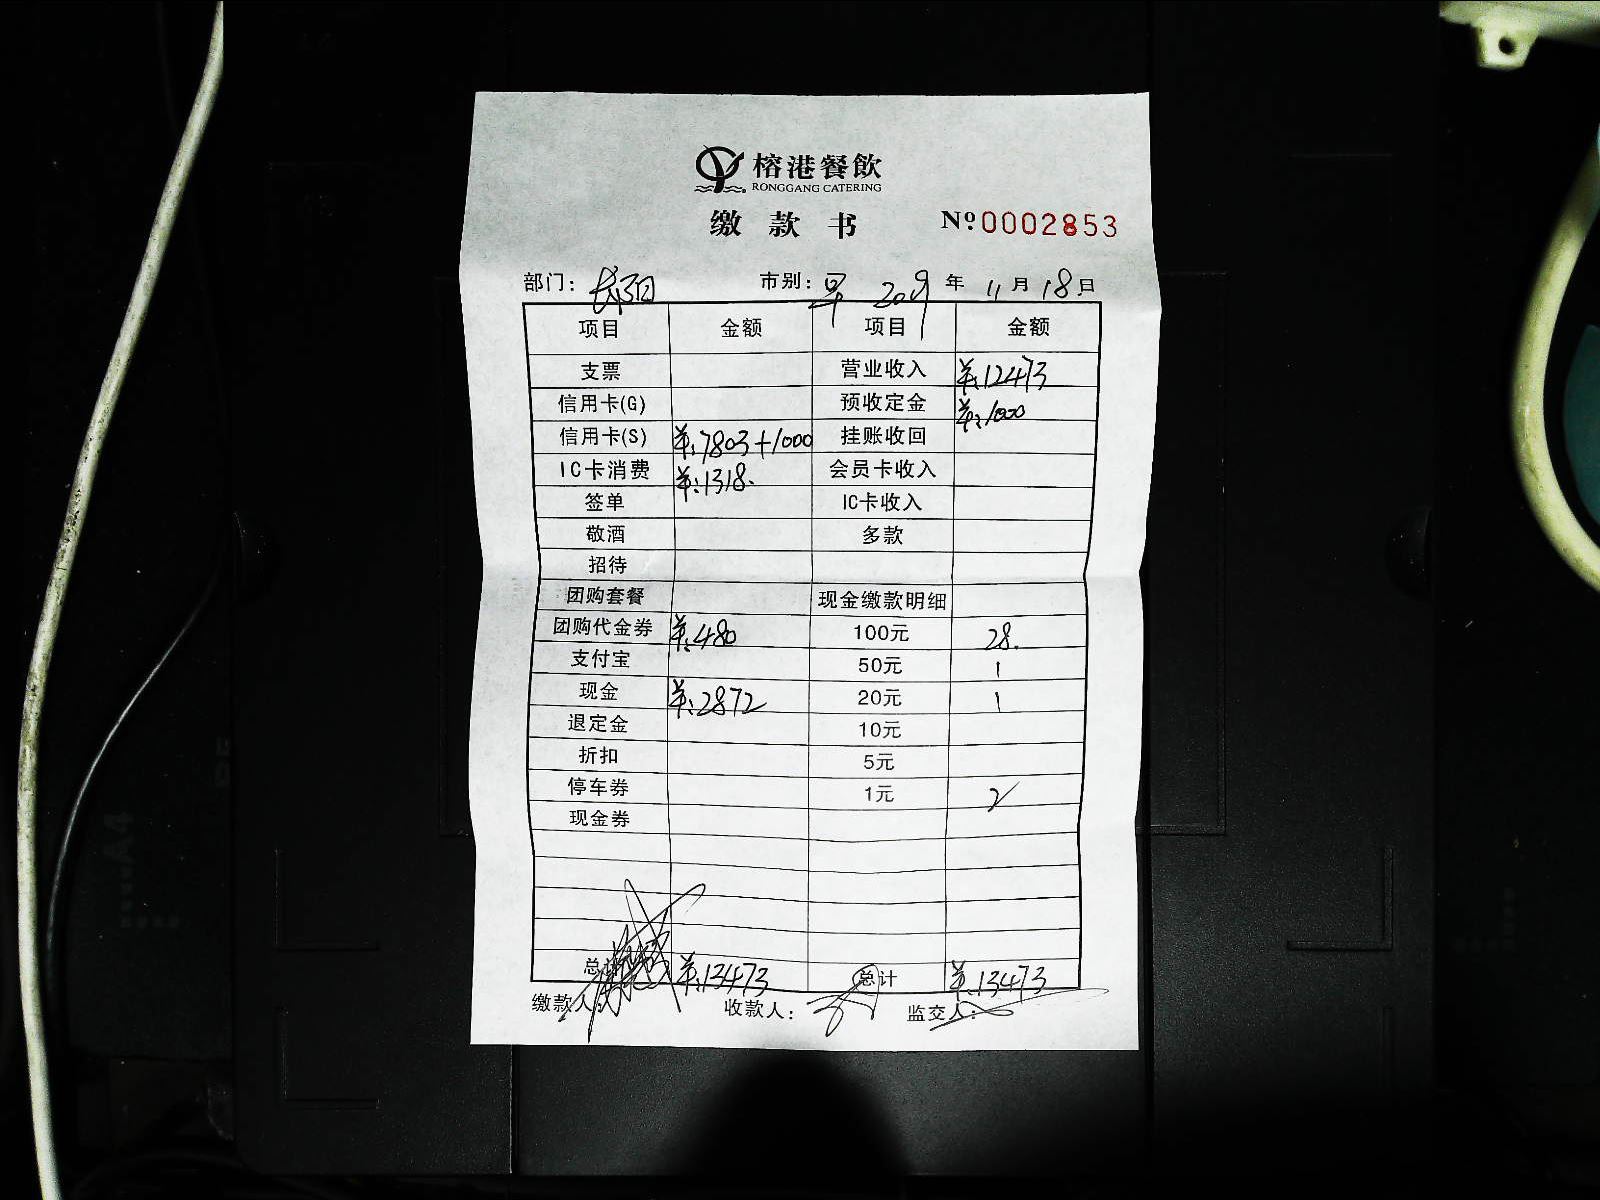 榕港餐飲
RONGGANG CATERING
缴款书 Nº 0002853
部门： 市别：早 2019年11月18日
项目 金额 项目 金额
支票 营业收入 ¥:12473
信用卡(G) 预收定金 ¥:1000
信用卡(S) ¥:7803+1000 挂账收回
IC卡消费 ¥:1318. 会员卡收入
签单 IC卡收入
敬酒 多款
招待
团购套餐 现金缴款明细
团购代金券 ¥:480 100元 28.
支付宝 50元 1
现金 ¥:2872 20元 1
退定金 10元
折扣 5元
停车券 1元 2
现金券
总计 ¥:13473 总计 ¥:13473
缴款人： 收款人： 监交人：